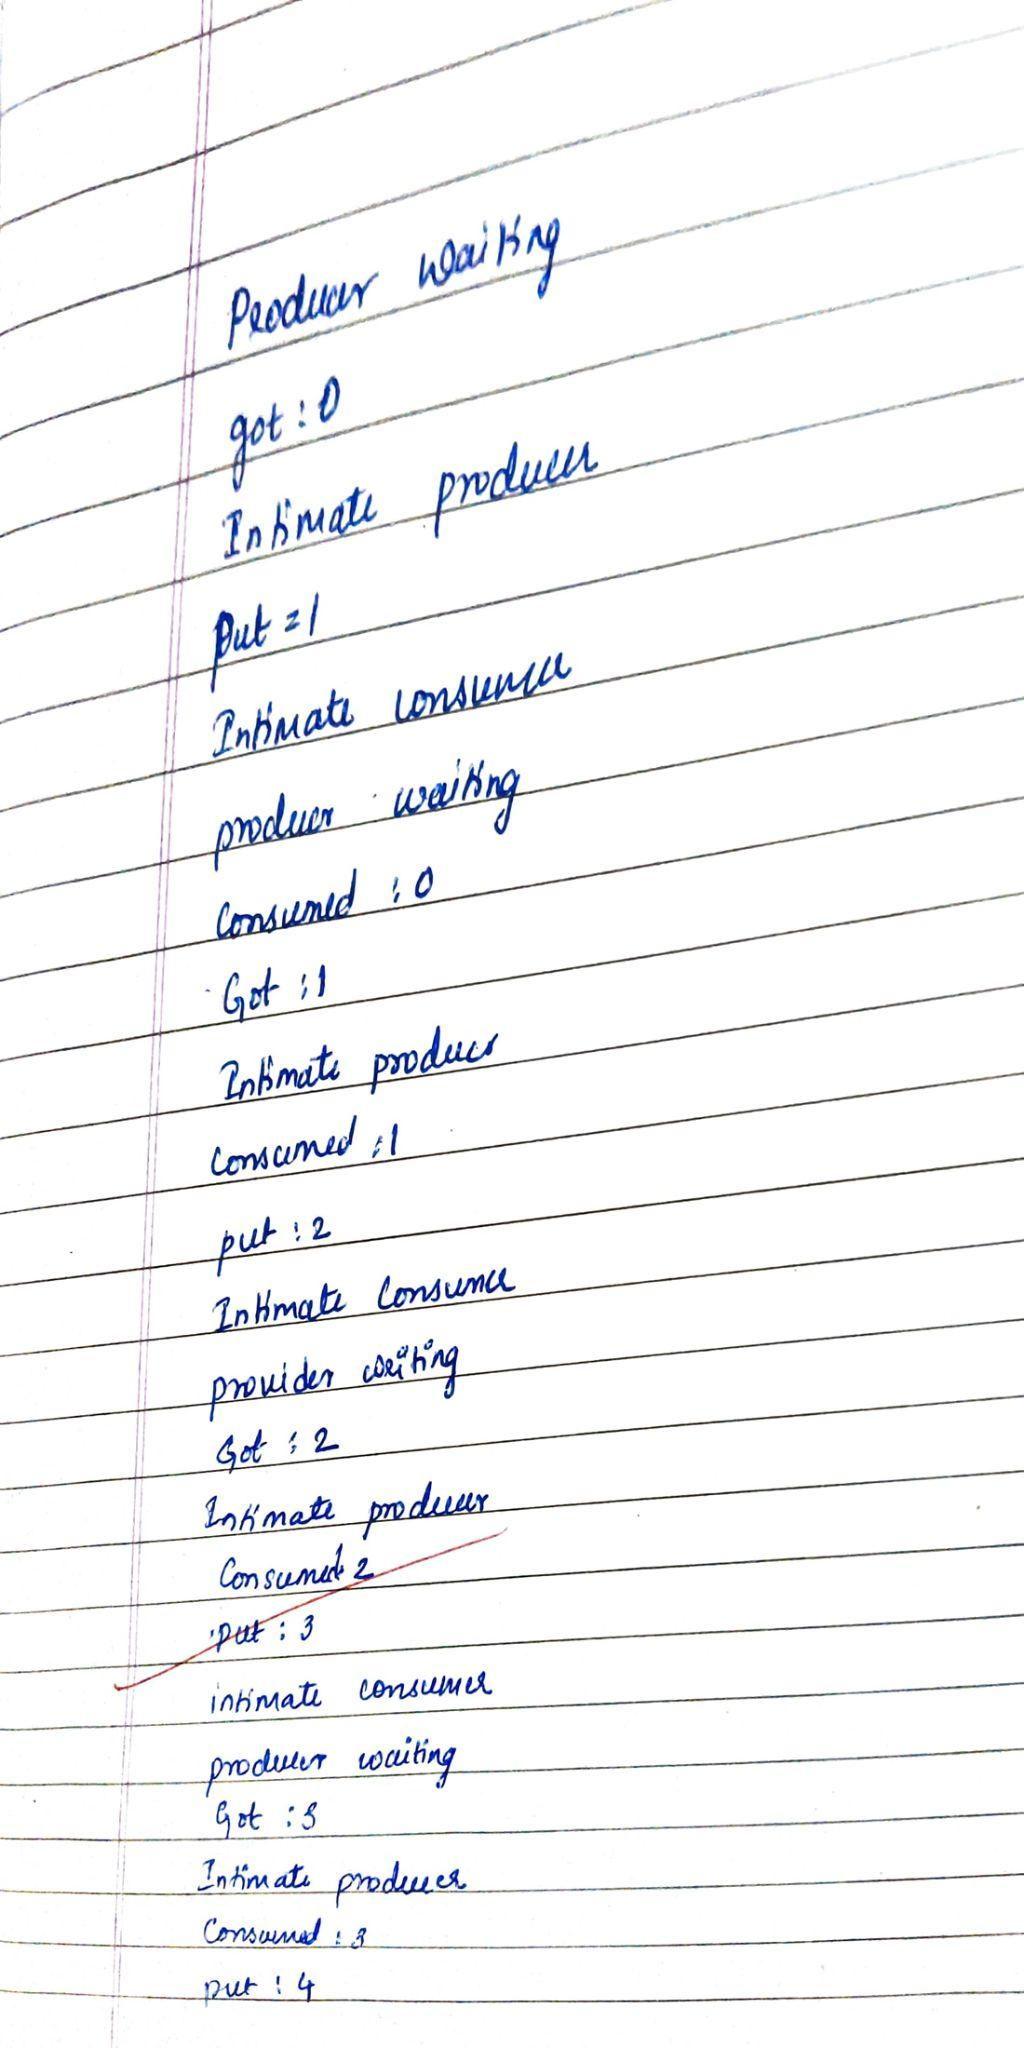 Producer waiting
got : 0
Intimate producer
put = 1
Intimate consumer
producer waiting
Consumed : 0
Got : 1
Intimate producer
Consumed : 1
put : 2
Intimate Consumer
provider waiting
Got : 2
Intimate producer
Consumed : 2
put : 3
intimate consumer
producer waiting
Got : 3
Intimate producer
Consumed : 3
put : 4